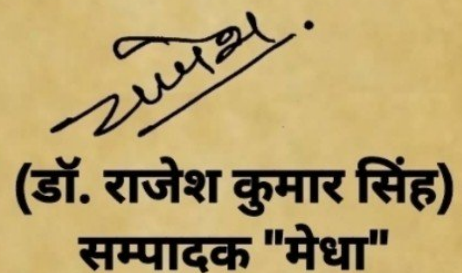 राजेश
(डॉ. राजेश कुमार सिंह)
सम्पादक "मेधा"